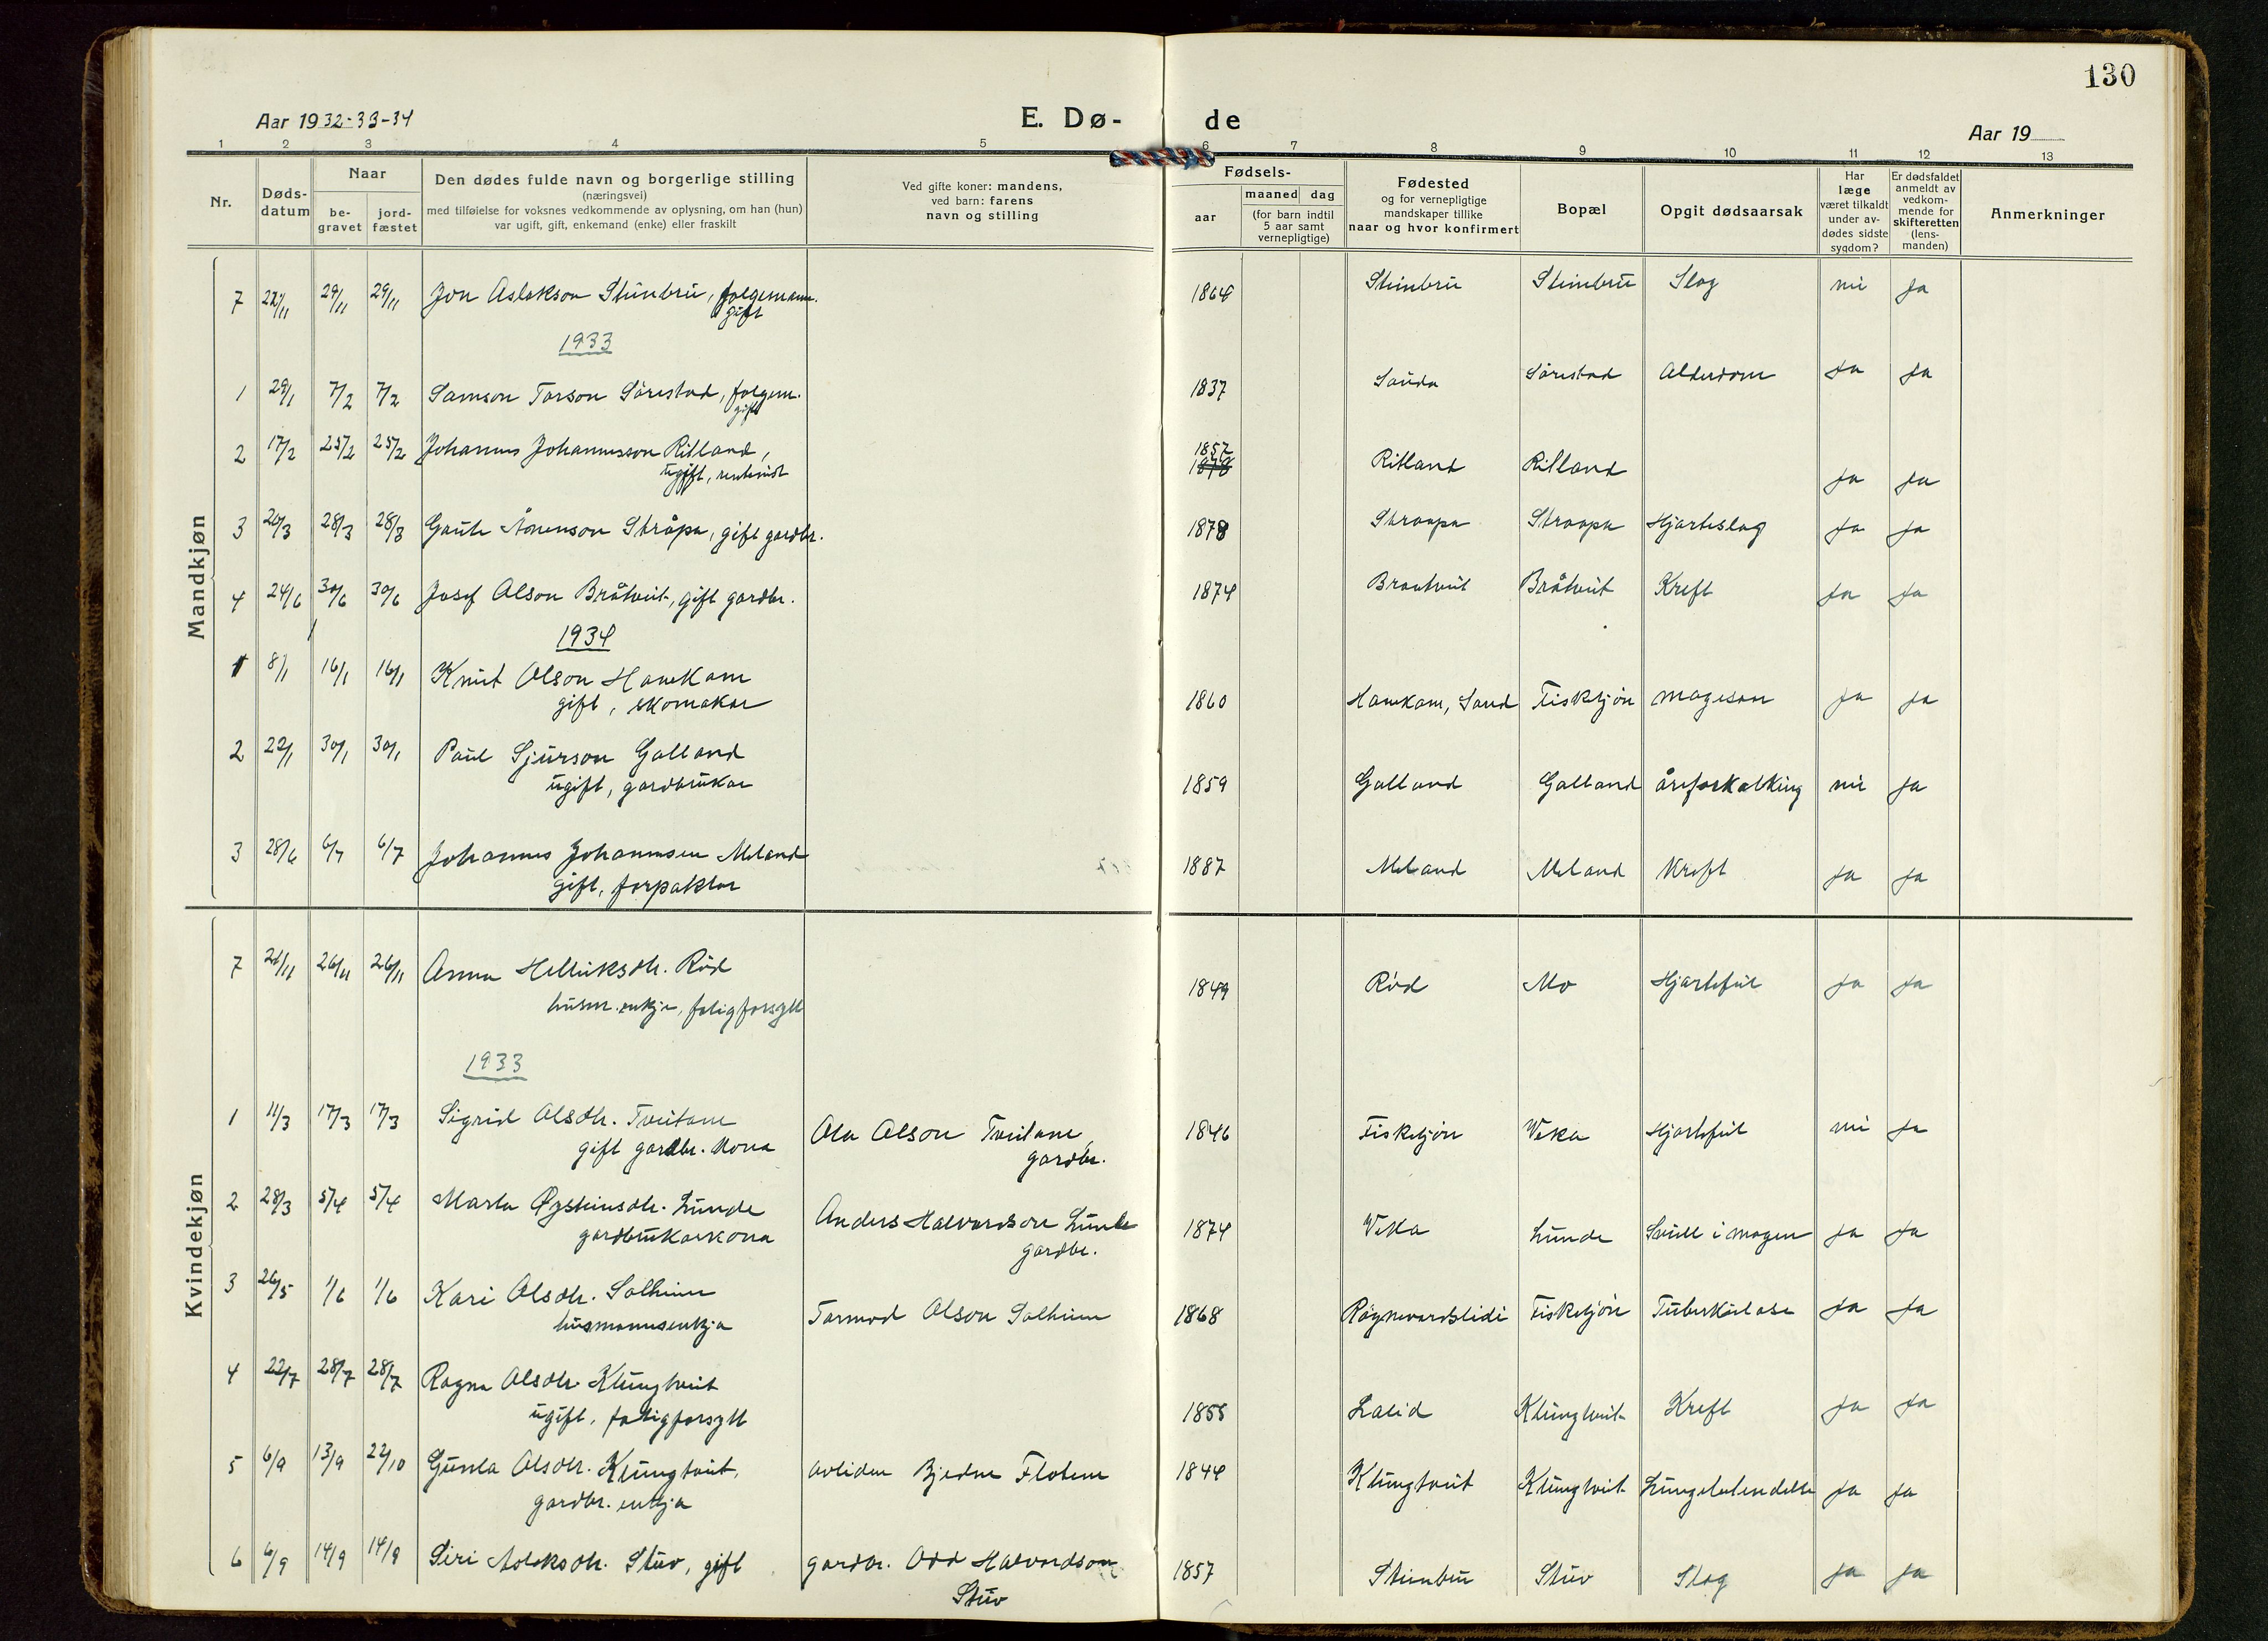 130
Aar 1932-33-34
E. Dø- de
Aar 19
1 2 3 4 5 6 7 8 9 10 11 12 13
Nr.
Døds-
datum
Naar
be-
gravet
jord-
fæstet
Den dødes fulde navn og borgerlige stilling
(næringsvei)
med tilføielse for voksnes vedkommende av oplysning, om han (hun)
var ugift, gift, enkemand (enke) eller fraskilt
Ved gifte koner: mandens,
ved barn: farens
navn og stilling
Fødsels-
aar
maaned dag
(for barn indtil
5 aar samt
vernepligtige)
Fødested
og for vernepligtige
mandskaper tillike
naar og hvor konfirmert
Bopæl
Opgit dødsaarsak
Har
læge
været tilkaldt
under av-
dødes sidste
sygdom?
Er dødsfaldet
anmeldt av
vedkom-
mende for
skifteretten
(lens-
manden)
Anmerkninger
Mandkjøn
7 29/11 29/11 Jon Aslakson Steinbru, folgemann. 1864 Steinbru Steinbru Slag nei Ja
gift
1933
1 29/1 7/2 7/2 Samson Tarson Sørestad, folgem. 1837 Sauda Sørestad Alderdom Ja Ja
gift
2 17/2 25/2 25/2 Johannes Johannesson Ritland, 1857 Ritland Ritland Ja Ja
ugift, rentenist 1878
3 20/3 28/3 28/3 Gaute Ånenson Stråpa, gift gardbr. 1878 Straapa Straapa Hjarteslag Ja Ja
4 24/6 30/6 30/6 Josef Olson Bråtveit, gift gardbr. 1874 Braatveit Bråtveit Kreft Ja Ja
1934
1 8/1 16/1 16/1 Knut Olson Hanekam 1860 Hanekam, Sand Fisketjøn magesaar Ja Ja
gift, skomakar
2 22/1 30/1 30/1 Paul Sjurson Galland 1859 Galland Galland åreforkalking nei Ja
ugift, gardbrukar
3 28/6 6/7 6/7 Johannes Johannesen Meland 1887 Meland Meland Kreft Ja Ja
gift, forpaktar
Kvindekjøn
7 21/11 26/11 26/11 Anna Helliksdtr. Rød 1849 Rød Mo Hjartefeil Ja Ja
husm. enkje, fatigforsytt
1933
1 11/3 17/3 17/3 Sigrid Olsdtr. Tveitane Ola Olson Tveitane, 1846 Fisketjøn Veka Hjartefeil nei Ja
gift gardbr. kona gardbr.
2 28/3 5/4 5/4 Marta Øysteinsdtr. Lunde Anders Halvardson Lunde 1874 Veka Lunde Svull i magen Ja Ja
gardbrukarkona gardbr.
3 26/5 1/6 1/6 Kari Olsdtr. Solheim Tormod Olson Solheim 1868 Røgnevardslidi Fisketjøn Tuberkulose Ja Ja
husmannsenkja
4 22/7 28/7 28/7 Ragna Olsdtr. Klungtveit 1855 Lalid Klungtveit Kreft Ja Ja
ugift, fatigforsytt
5 6/9 13/9 22/10 Gunla Olsdtr. Klungtveit, avliden Bjedne Flotene 1844 Klungtveit Klungtveit Lungebetendelse Ja Ja
gardbr. enkja
6 6/9 14/9 14/9 Siri Aslaksdtr. Stuv, gift gardbr. Odd Halvardson 1857 Steinbru Stuv Slag Ja Ja
Stuv